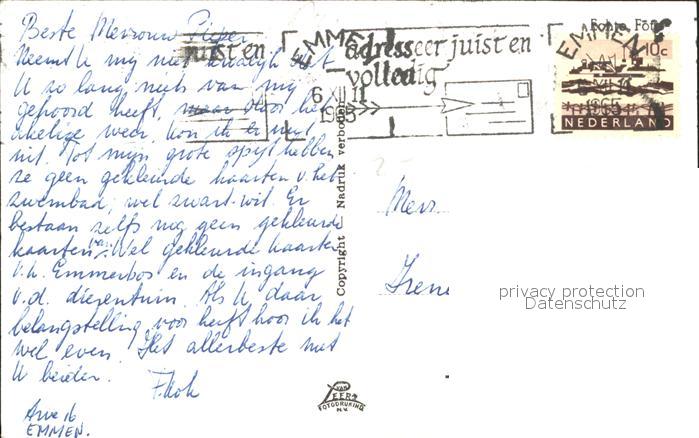 Beste Mevrouw Pieper
Neemt U mij niet kwalijk dat
U zo lang niets van mij
gehoord heeft, maar door het
akelige weer, kon ik er niet
uit. Tot mijn grote spijt hebben
ze geen gekleurde kaarten v. het
zwembad; wel zwart-wit. Er
bestaan zelfs nog geen gekleurde
kaarten. Wel gekleurde kaarten
v.h. Emmerbos en de ingang
v.d. dierentuin. Als U daar
belangstelling voor heeft hoor ik het
wel even. Het allerbeste met
U beiden.
F. Kok
EMMEN.
juist en
EMMEN
6 XII 11
1965
adresseer juist en
volledig
EMMEN
1965
10c
NEDERLAND
Copyright Nadruk verboden
Mevr.
Irene
privacy protection
Datenschutz
VAN
LEER'S
FOTODRUKIND.
N.V.